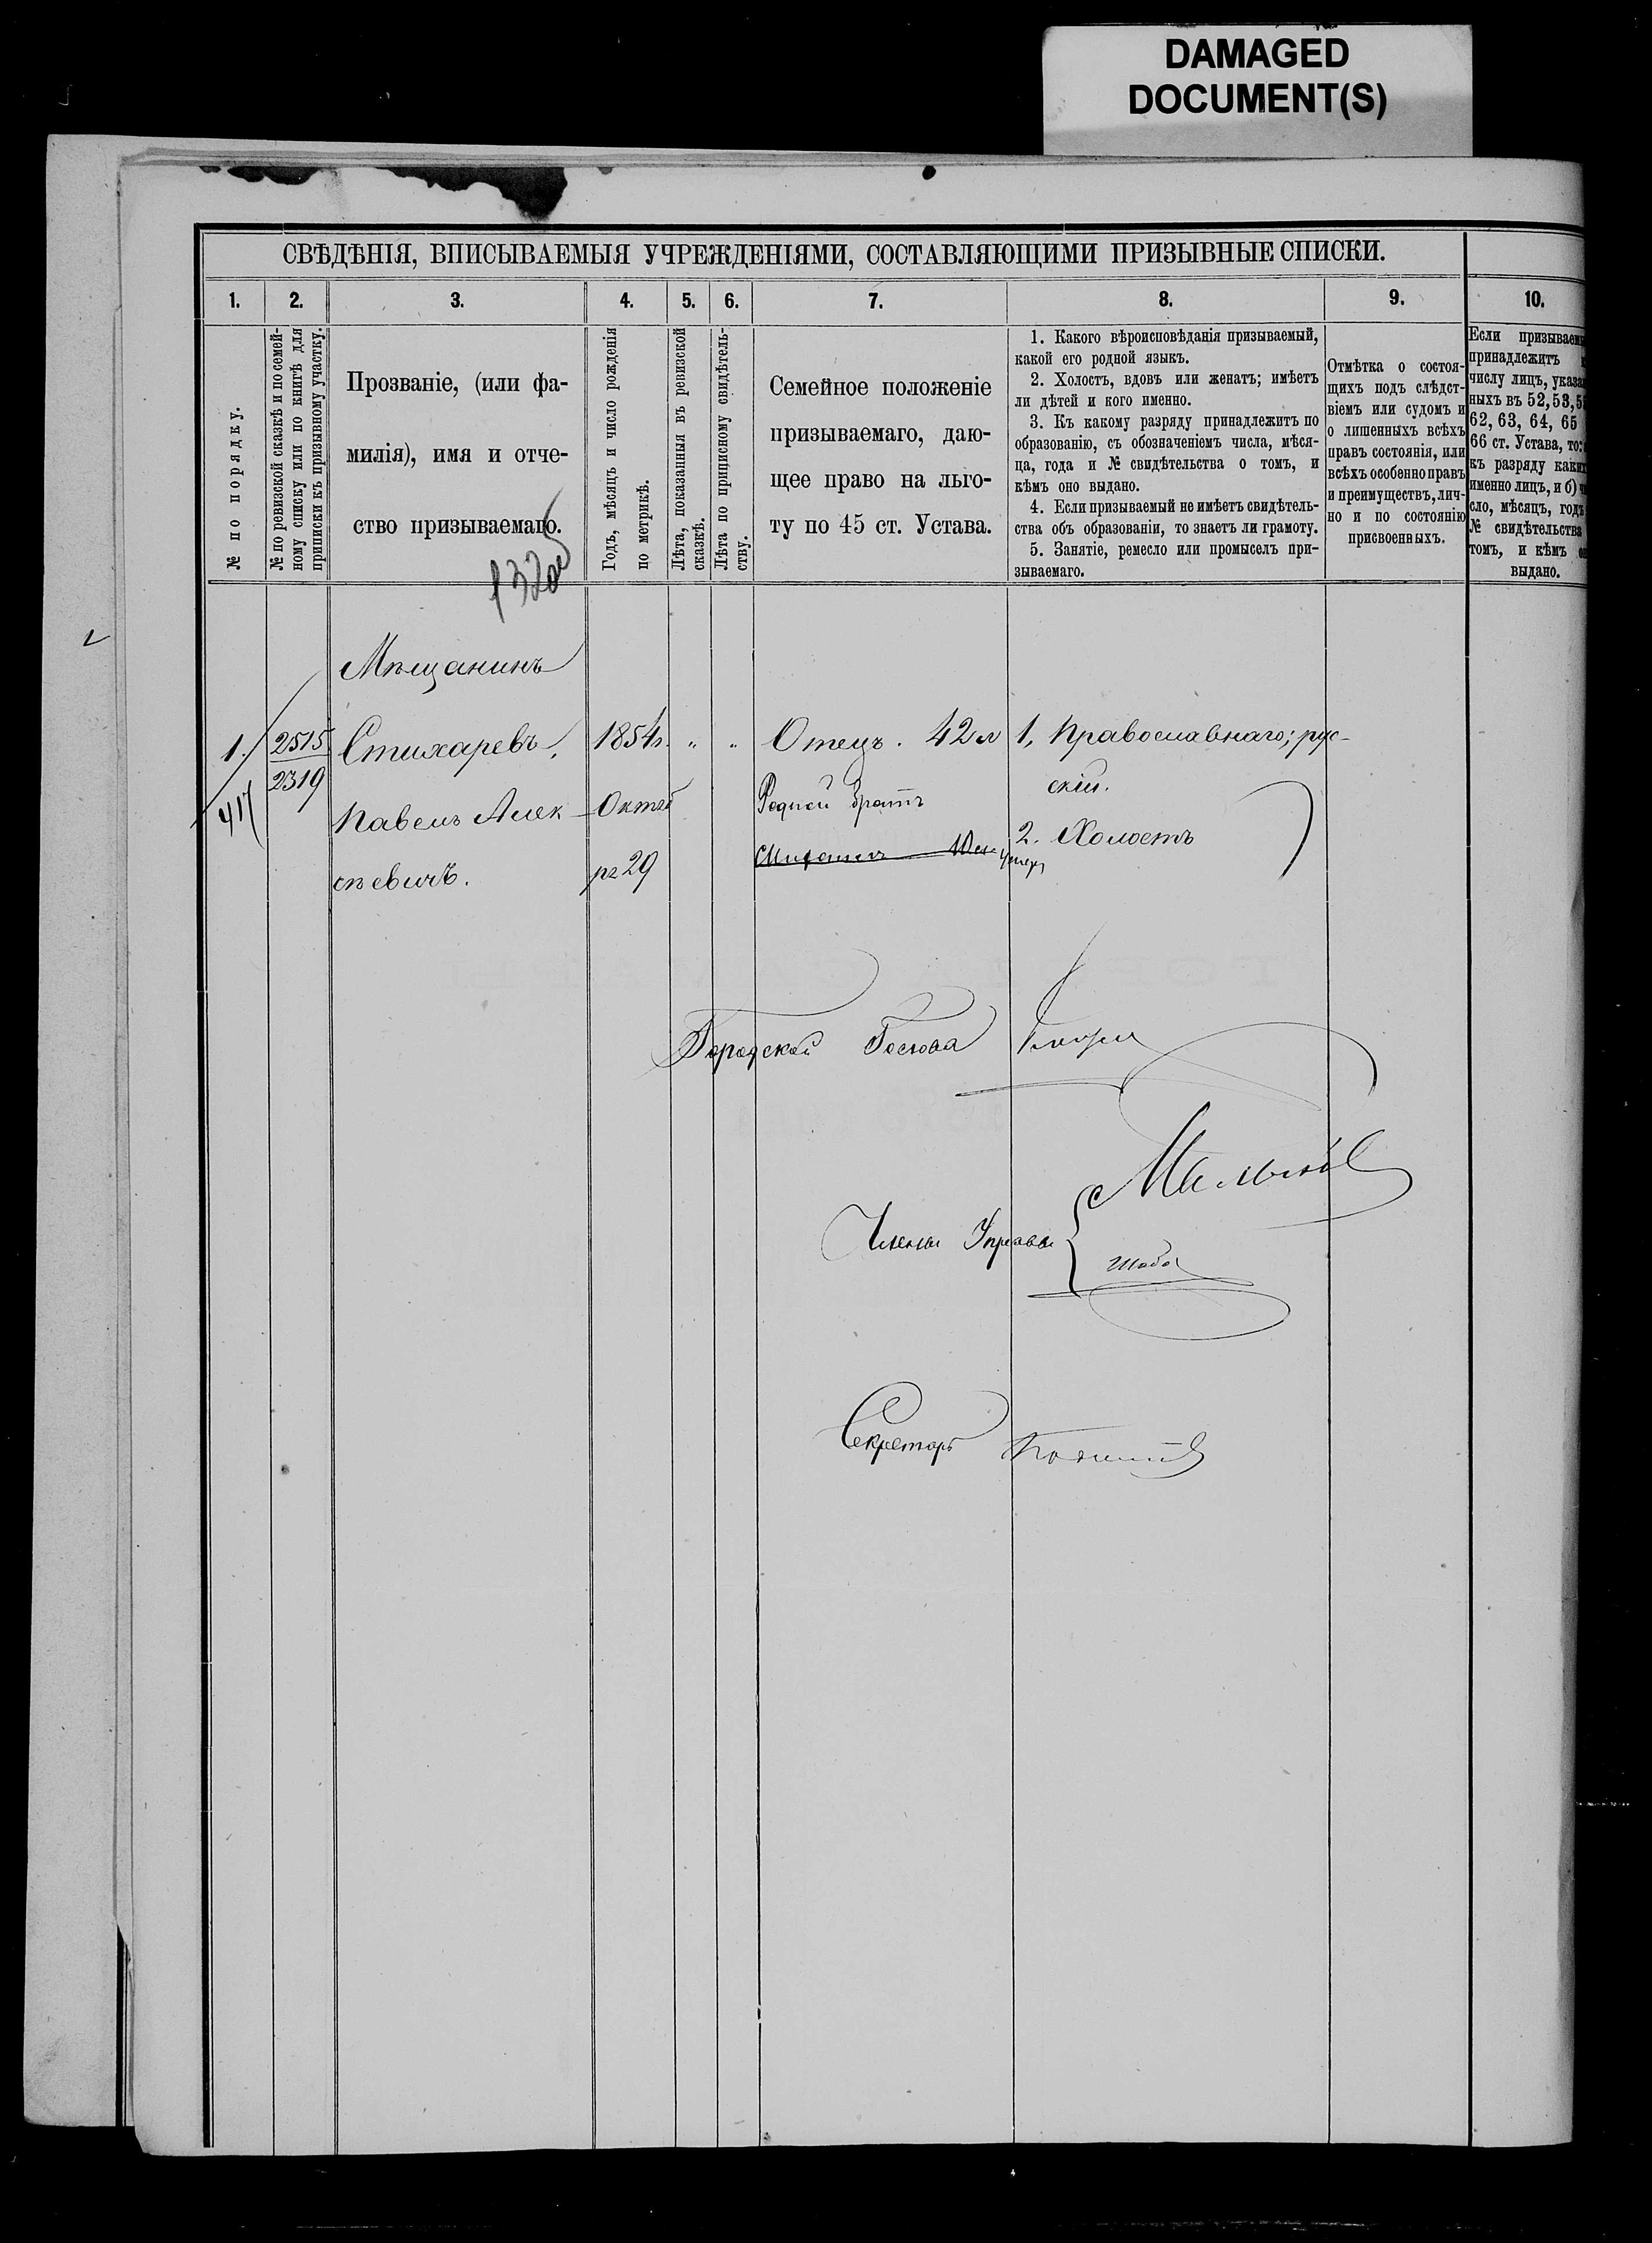 DAMAGED
DOCUMENT(S)
СВѢДѢНІЯ, ВПИСЫВАЕМЫЯ УЧРЕЖДЕНІЯМИ, СОСТАВЛЯЮЩИМИ ПРИЗЫВНЫЕ СПИСКИ.
1. 2. 3. 4. 5. 6. 7. 8. 9. 10.
№ по порядку.
№ по ревизской сказкѣ и по семей-
ному списку или по книгѣ для
приписки къ призывному участку.
Прозваніе, (или фа-
милія), имя и отче-
ство призываемаго.
Годъ, мѣсяцъ и число рожденія
по метрикѣ.
Лѣта, показанныя въ ревизской
сказкѣ.
Лѣта по приписному свидѣтель-
ству.
Семейное положеніе
призываемаго, даю-
щее право на льго-
ту по 45 ст. Устава.
1. Какого вѣроисповѣданія призываемый,
какой его родной языкъ.
2. Холостъ, вдовъ или женатъ; имѣетъ
ли дѣтей и кого именно.
3. Къ какому разряду принадлежитъ по
образованію, съ обозначеніемъ числа, мѣся-
ца, года и № свидѣтельства о томъ, и
кѣмъ оно выдано.
4. Если призываемый не имѣетъ свидѣтель-
ства объ образованіи, то знаетъ ли грамоту.
5. Занятіе, ремесло или промыселъ при-
зываемаго.
Отмѣтка о состоя-
щихъ подъ слѣдст-
віемъ или судомъ и
о лишенныхъ всѣхъ
правъ состоянія, или
всѣхъ особенно правъ
и преимуществъ, лич-
но и по состоянію
присвоенныхъ.
Если призываемы
принадлежитъ
числу лицъ, указан
ныхъ въ 52, 53, 5
62, 63, 64, 65
66 ст. Устава, то:
къ разряду каких
именно лицъ, и б) ч
сло, мѣсяцъ, годъ
№ свидѣтельства
томъ, и кѣмъ
выдано.
Мѣщанинъ
1. 2515 Стихаревъ, 1854 г. " " Отецъ. 42 л 1, Православнаго; рус-
417 2319 Павелъ Алек- Октяб Родной братъ скій.
сѣевичъ. ря 29 Михаилъ 10 л. умеръ 2. Холостъ
Городской Голова
Члены Управы
Секретарь